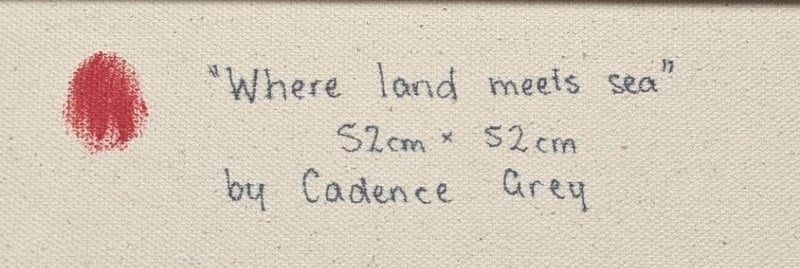 "Where land meets sea"
52cm × 52cm
by Cadence Grey